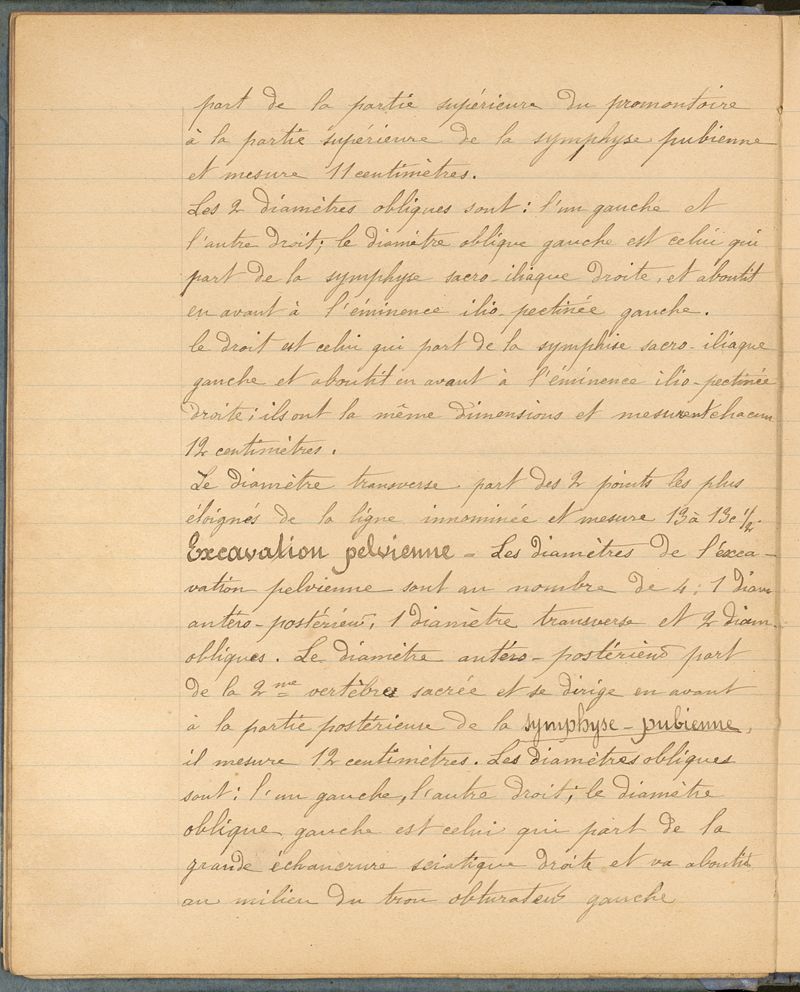 part de la partie supérieure du promontoire
à la partie supérieure de la symphyse pubienne
et mesure 11 centimètres.
Les 2 diamètres obliques sont : l'un gauche et
l'autre droit; le diamètre oblique gauche est celui qui
part de la symphyse sacro-iliaque droite, et aboutit
en avant à l'éminence ilio-pectinée gauche.
le droit est celui qui part de la symphise sacro-iliaque
gauche et aboutit en avant à l'éminence ilio-pectinée
droite; ils ont la même dimensions et mesurent chacun
12 centimètres.
Le diamètre transverse part des 2 points les plus
éloignés de la ligne innominée et mesure 13 à 13c 1/2.
Excavation pelvienne - Les diamètres de l'exca-
vation pelvienne sont au nombre de 4 : 1 diam
antéro-postérieur, 1 diamètre transverse et 2 diam.
obliques. Le diamètre antéro-postérieur part
de la 2me vertèbre sacrée et se dirige en avant
à la partie postérieure de la symphyse-pubienne,
il mesure 12 centimètres. Les diamètres obliques
sont : l'un gauche, l'autre droit; le diamètre
oblique gauche est celui qui part de la
grande échancrure sciatique droite et va aboutir
au milieu du trou obturateur gauche